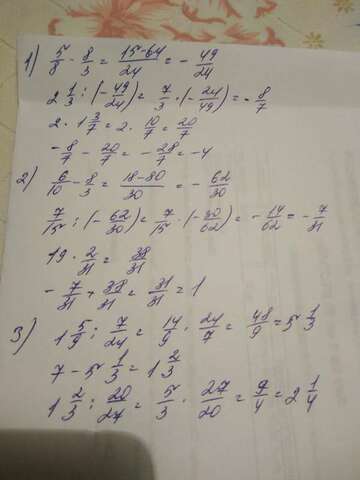 1) 5/8 - 8/3 = 15-64/24 = - 49/24
2 1/3 : (- 49/24) = 7/3 · (- 24/49) = - 8/7
2 · 1 3/7 = 2 · 10/7 = 20/7
- 8/7 - 20/7 = - 28/7 = -4
2) 6/10 - 8/3 = 18-80/30 = - 62/30
7/15 : (- 62/30) = 7/15 · (- 30/62) = - 14/62 = - 7/31
19 · 2/31 = 38/31
- 7/31 + 38/31 = 31/31 = 1
3) 1 5/9 : 7/24 = 14/9 · 24/7 = 48/9 = 5 1/3
7 - 5 1/3 = 1 2/3
1 2/3 : 20/27 = 5/3 · 27/20 = 9/4 = 2 1/4